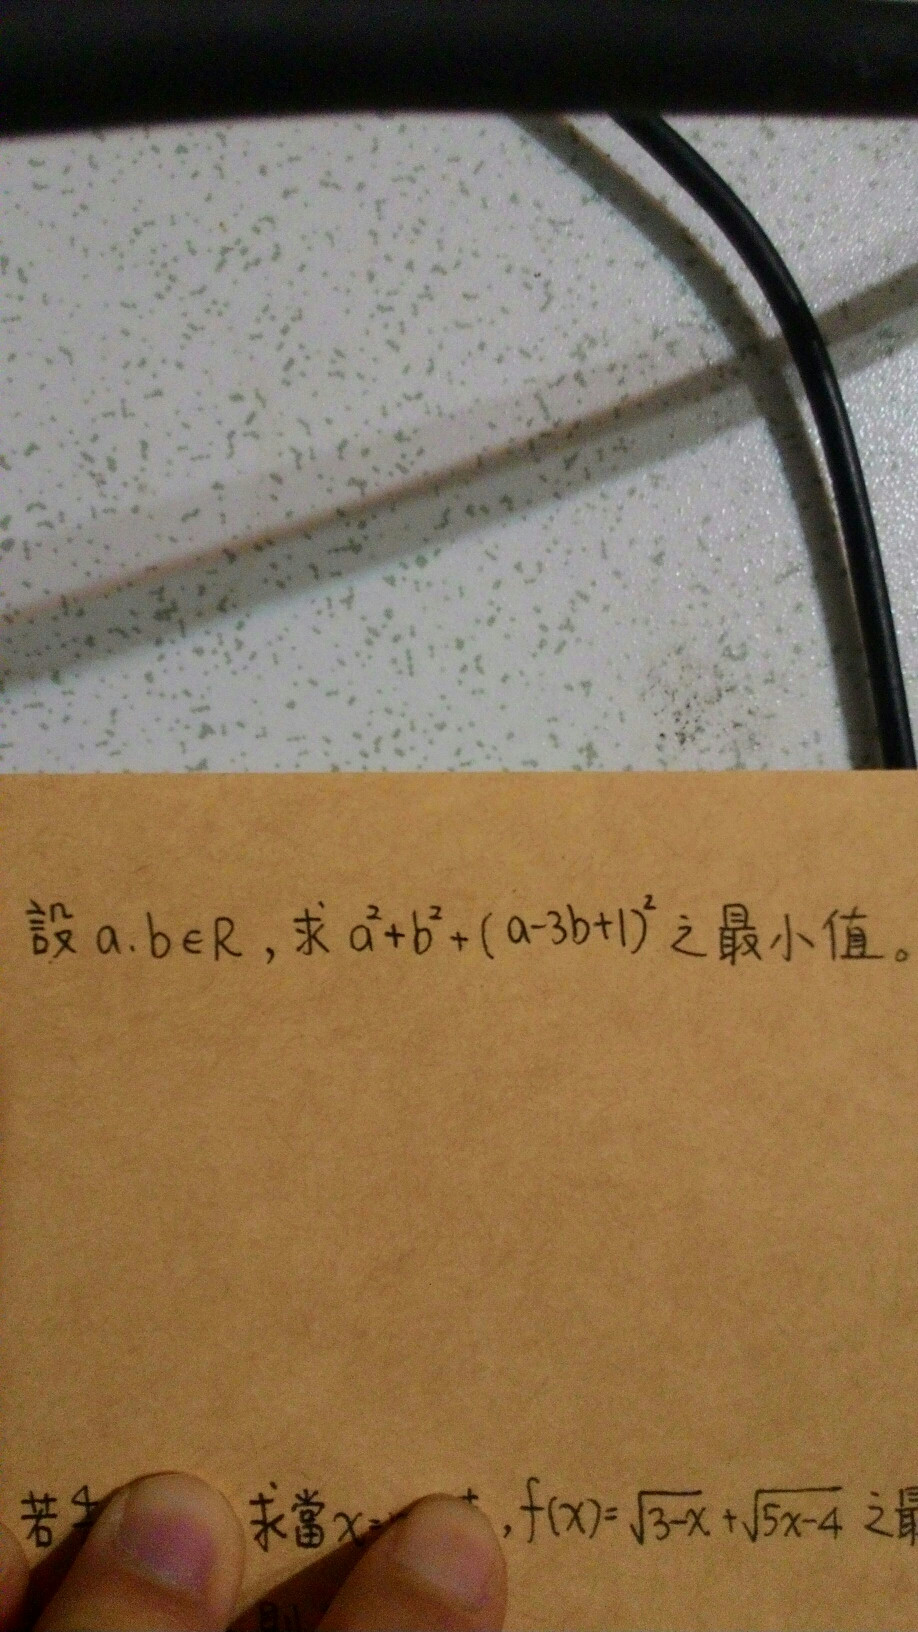 設 a.b∈R,求 a²+b²+(a-3b+1)²之最小值。
若 求當x= ,f(x)=√(3-x)+√(5x-4) 之最
則